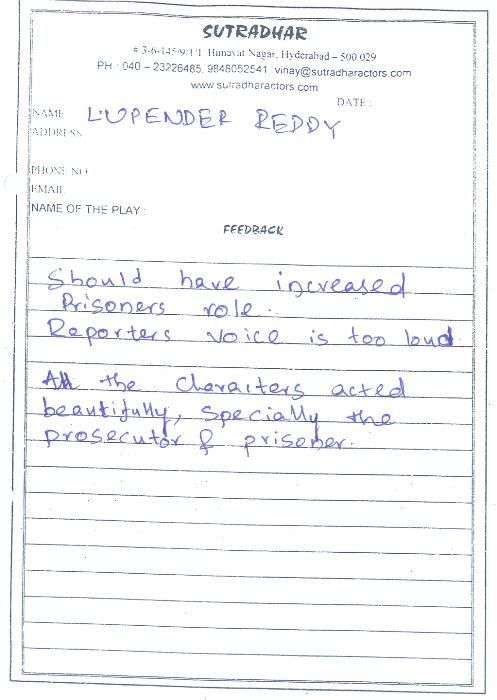 SUTRADHAR
# 3-6-145/9/1/1, Himayat Nagar, Hyderabad – 500 029
PH : 040 – 23226485, 9848052541 vinay@sutradharactors.com
www.sutradharactors.com
DATE :
NAME L.UPENDER REDDY
ADDRESS
PHONE NO
EMAIL
NAME OF THE PLAY :
FEEDBACK
Should have increased
Prisoners role..
Reporters voice is too loud
All the Characters acted
beautifully, specially the
prosecutor & prisoner.